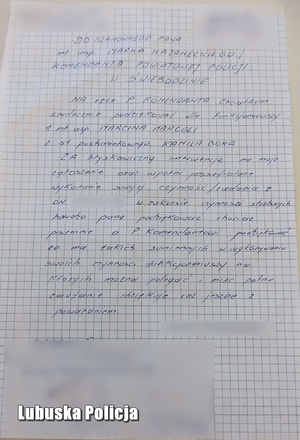 DO SZANOWNEGO PANA
mł. insp. MARKA KAZANECKIEGO /
KOMENDANTA POWIATOWEJ POLICJI
W ŚWIEBODZINIE
NA ręce P. KOMENDANTA chciałbym
serdecznie podziękować dla funkcjonariuszy
1. mł. asp. MARCINA
2. st. posterunkowego KAMILA BOKA
ZA błyskawiczną interwencję na moje
zgłoszenie oraz w pełni profesjonalne
wykonanie swojej czynności / zadania z
DN w zakresie czynności służbowych
bardzo panu podziękować chociaż
pisemnie a P. Komendantowi
że ma takich sumiennych w wykonywaniu
swoich czynności funkcjonariuszy na
których można polegać i mieć pełne
zaufanie dziękuję raz jeszcze z
poważaniem
Lubuska Policja